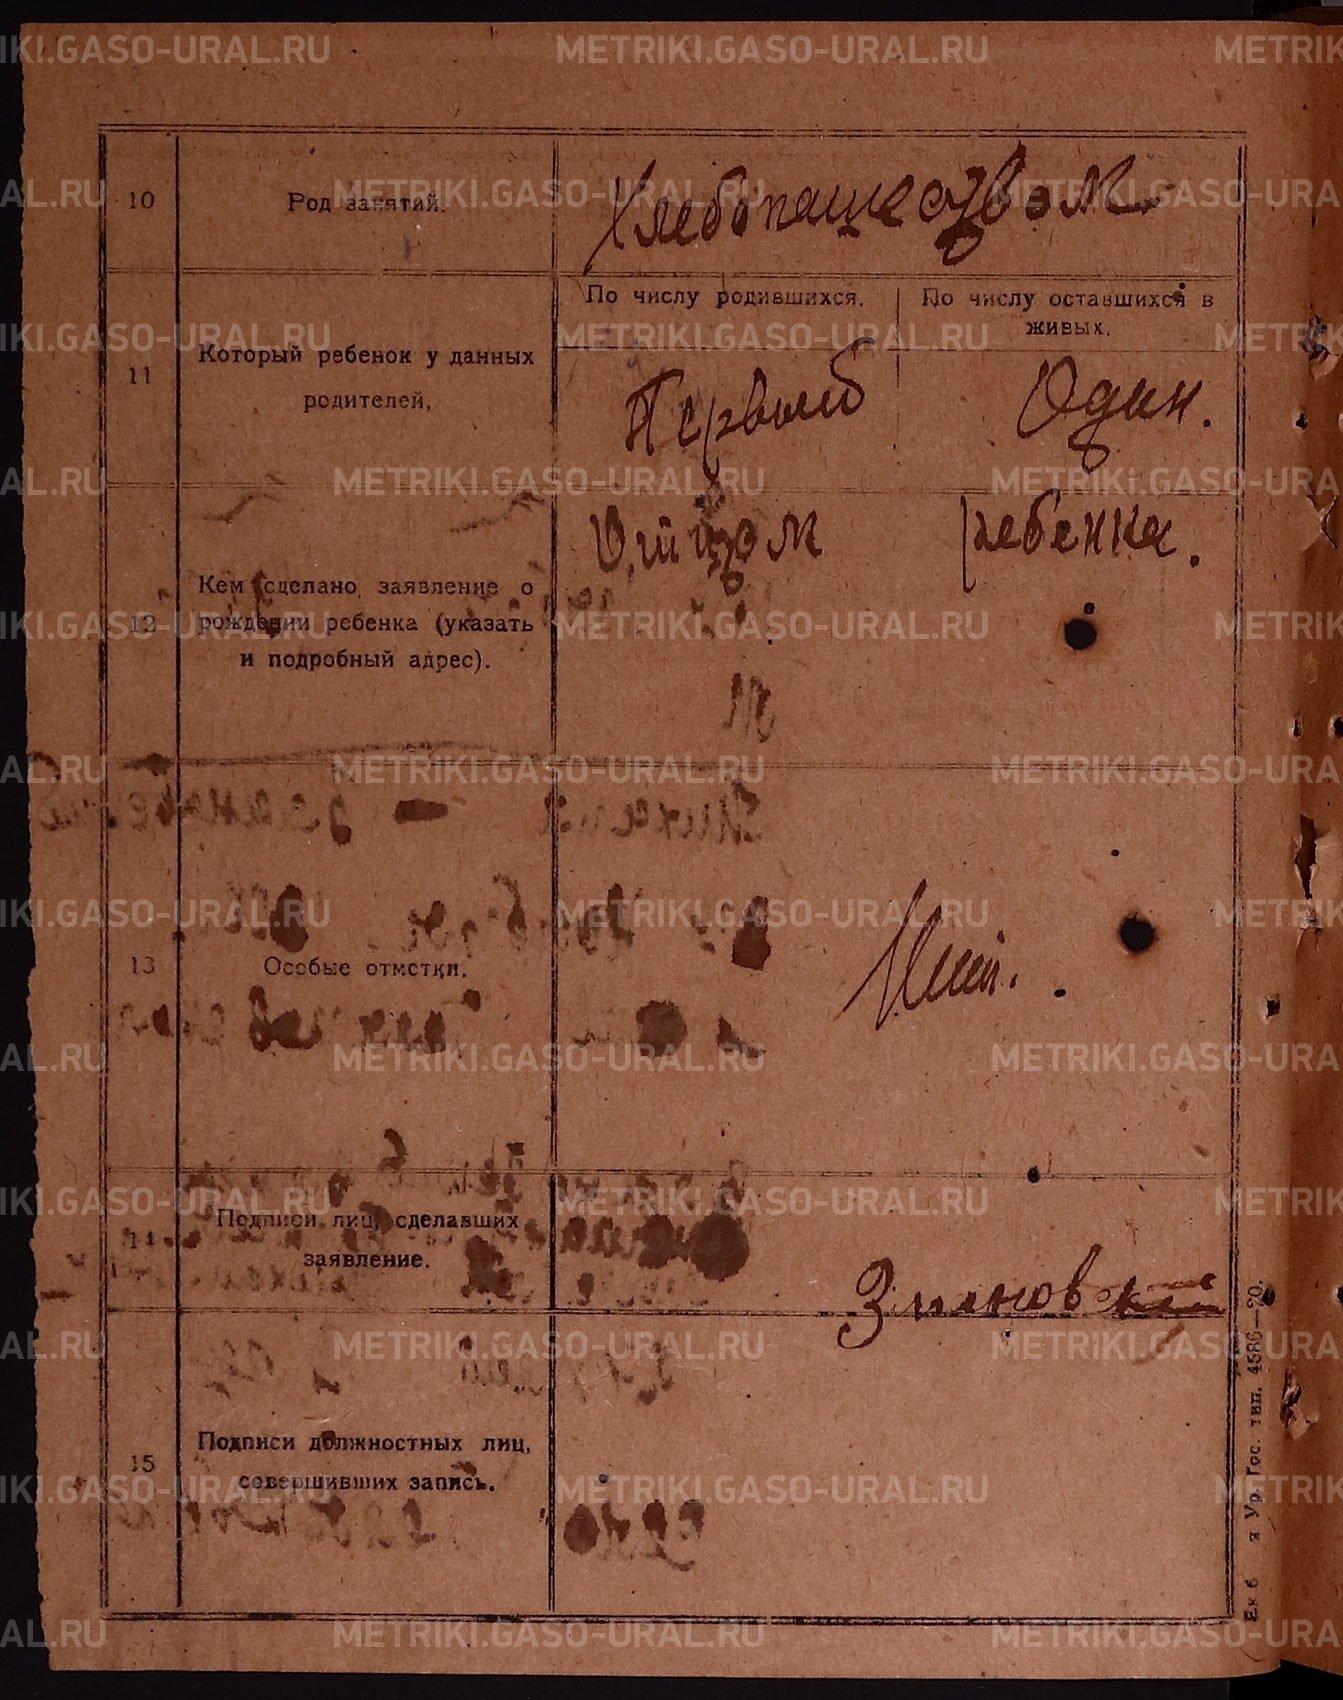 METRIKI.GASO-URAL.RU
10
Род занятий.
Хлебопашеством.
11
Который ребенок у данных
родителей,
По числу родившихся.
По числу оставшихся в
живых.
Первый
Один.
12
Кем сделано заявление о
рождении ребенка (указать
и подробный адрес).
Отцом ребенка.
13
Особые отметки.
14
Подписи лиц, сделавших
заявление.
15
Подписи должностных лиц,
совершивших запись.
Ур. Гос. тип. 4586—20.